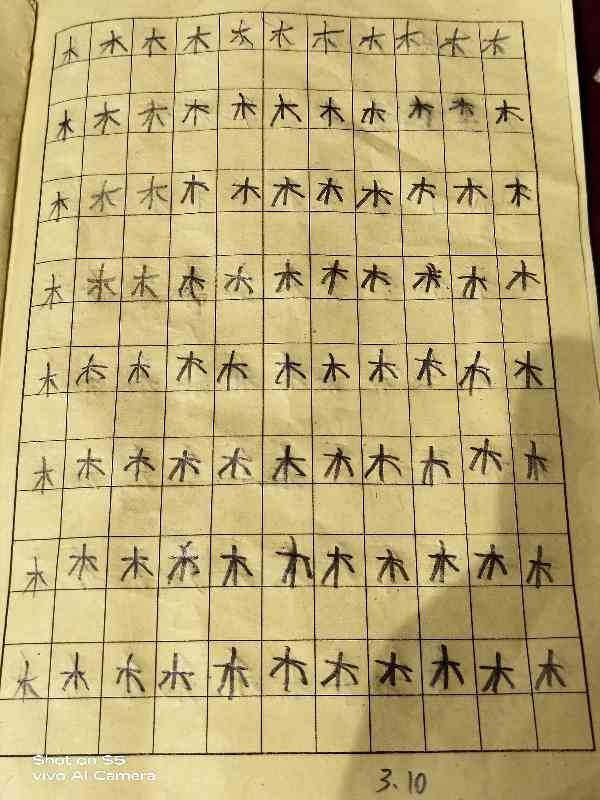 木木木木木木木木木木木
木木木木木木木木木木木
木木木木木木木木木木木
木木木木木木木木木木木
木木木木木木木木木木木
木木木木木木木木木木木
木木木木木木木木木木木
木木木木木木木木木木木
Shot on S5
vivo AI Camera
3.10